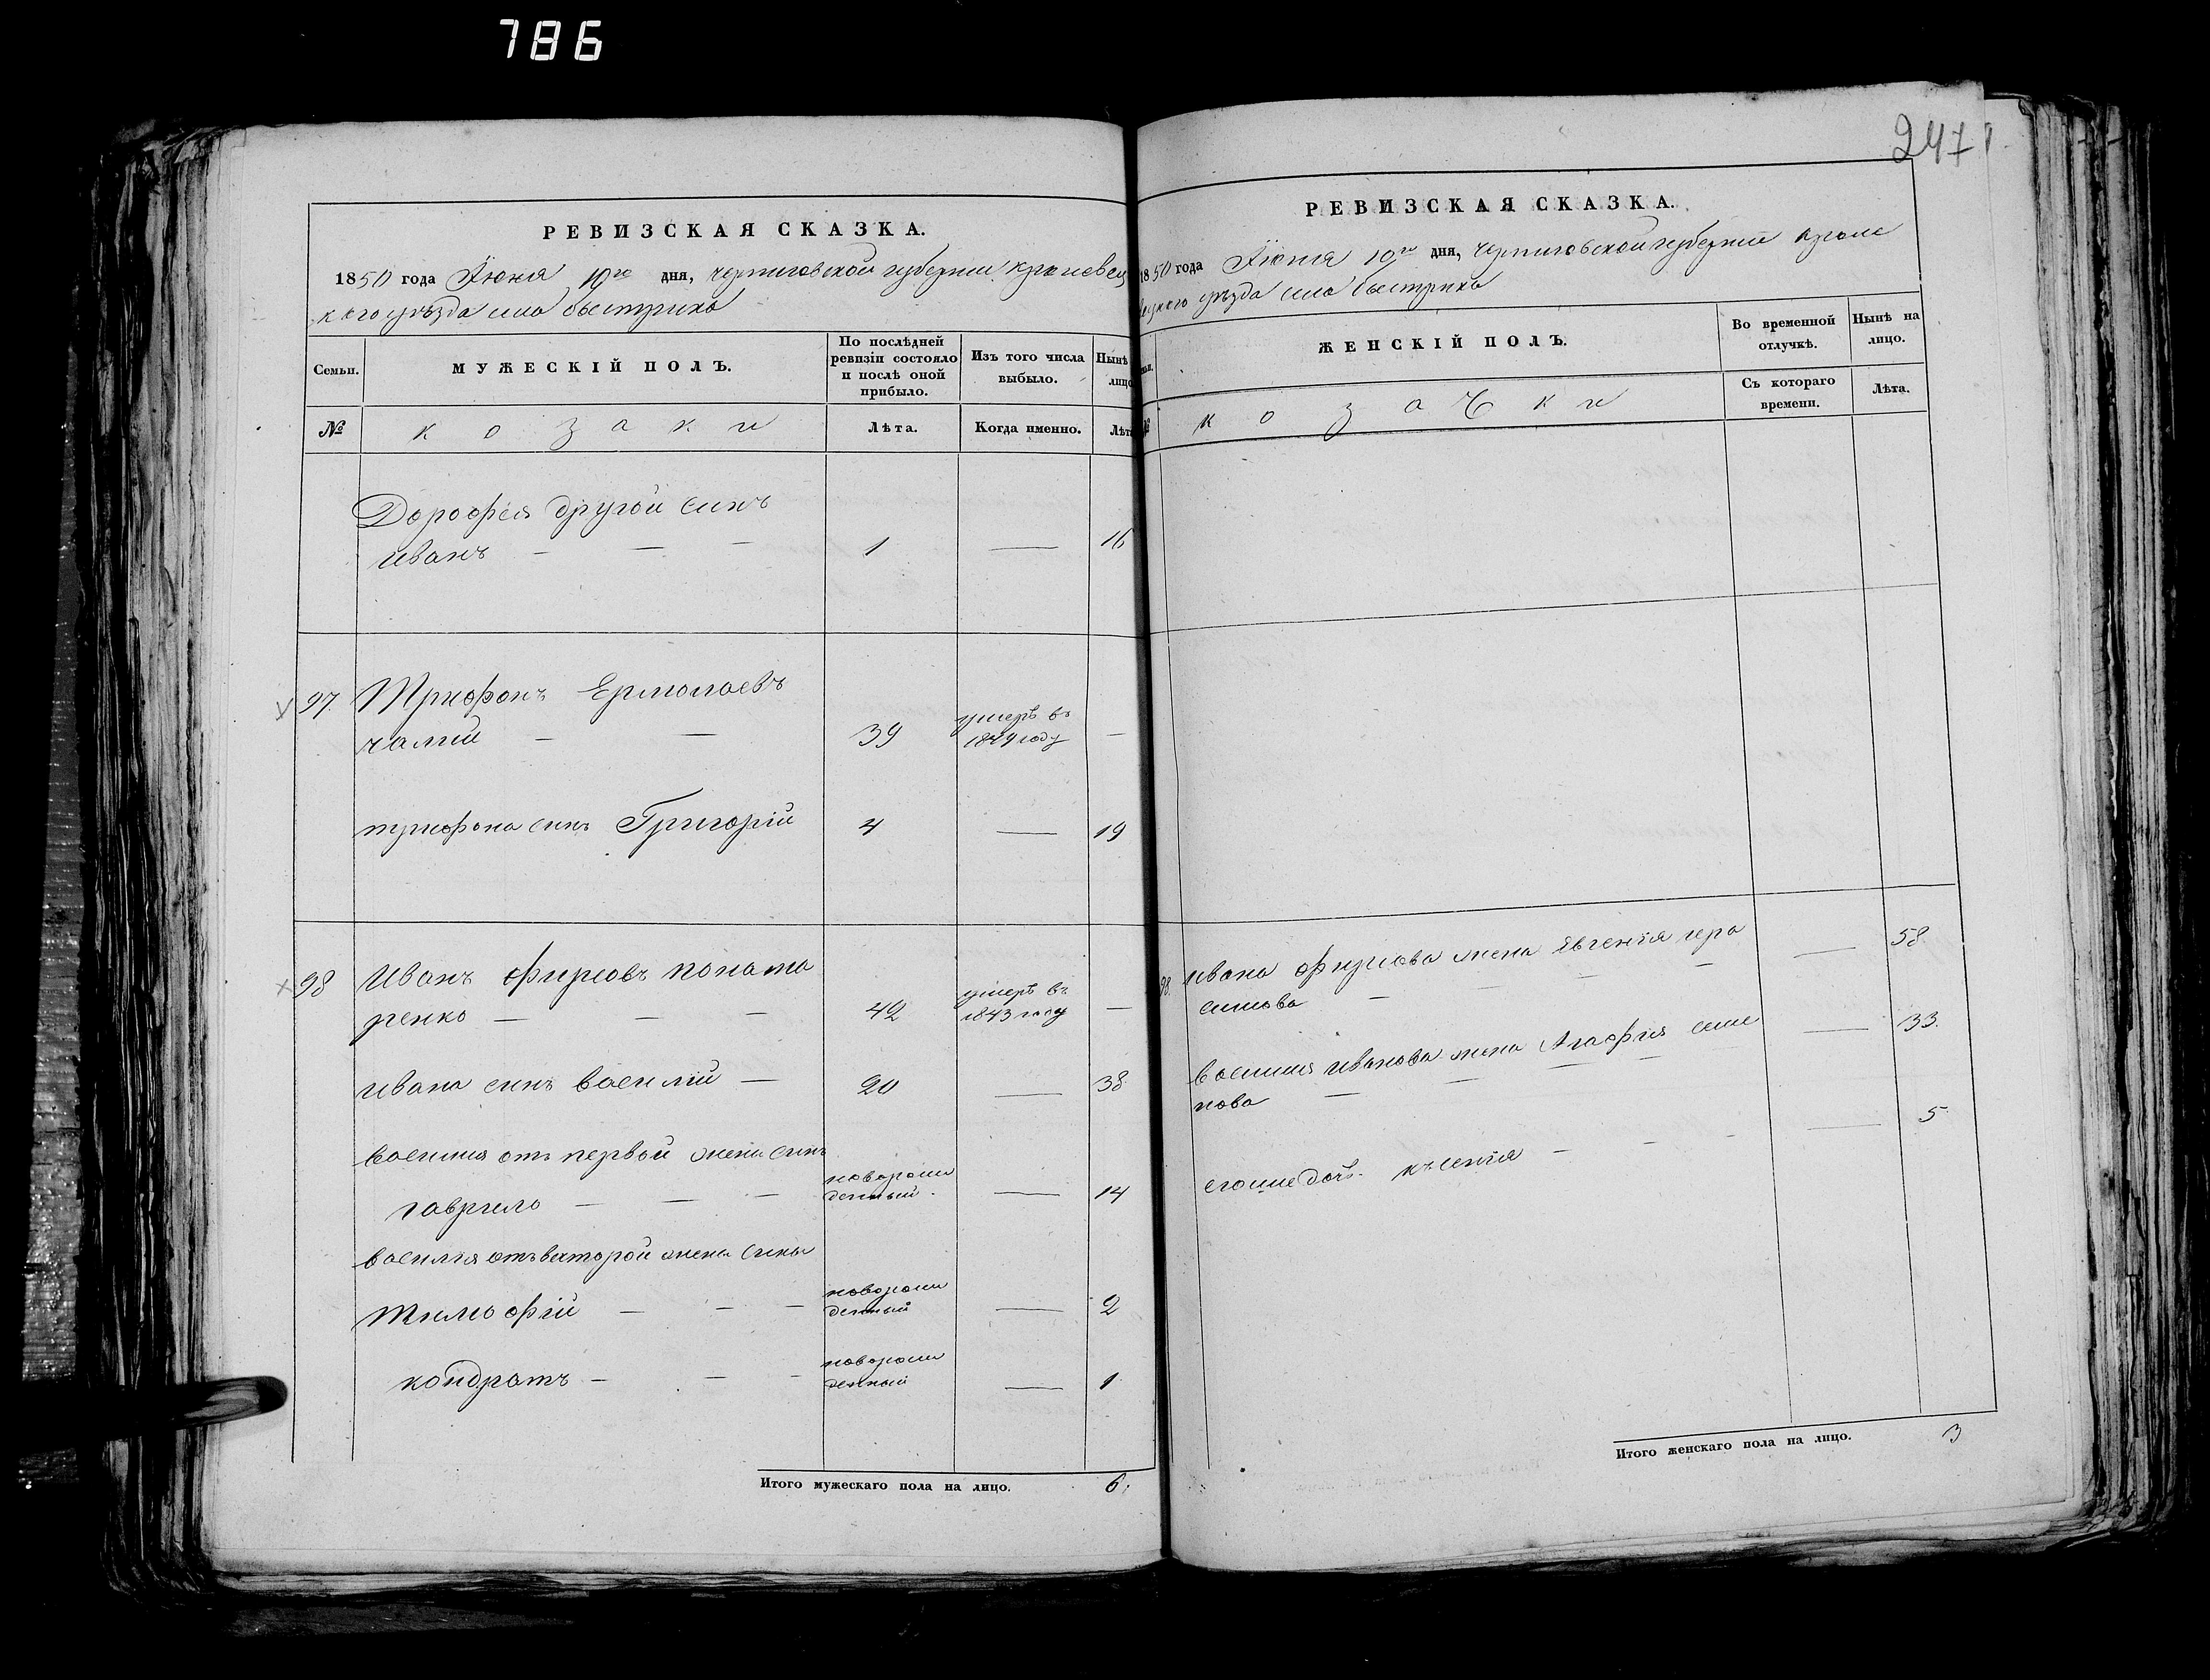 786
2471
РЕВИЗСКАЯ СКАЗКА.
1850 года Июня 10го дня, черниговской губернии кролевец
кого уѣзда села быстрика
Семьи. МУЖЕСКІЙ ПОЛЪ. По послѣдней ревизіи состояло и послѣ оной прибыло. Изъ того числа выбыло. Нынѣ лицо
№ козаки Лѣта. Когда именно. Лѣта
Дорофея другой синъ
иванъ — — — 1 — 16
97. Трифонъ Ермолаевъ
чалий — — 39 умеръ въ 1849 году —
трифона синъ Григорій 4 — 19
98 Иванъ фирсовъ понама
ренко — — — 42 умеръ въ 1843 году —
ивана синъ василий — 20 — 38
василия отъ первой жени синъ
гаврило — — — новорож денный. — 14
василія отъ второй жени сины
тимофій — — — новорож денный — 2
кондратъ — — — новорож денный — 1
Итого мужескаго пола на лицо. 6.
РЕВИЗСКАЯ СКАЗКА.
1850 года Июня 10го дня, черниговской губерніи кроле
вецкого уѣзда села быстрика
ЖЕНСКІЙ ПОЛЪ. Во временной отлучкѣ. Нынѣ на лицо.
№ козачки Съ котораго времени. Лѣта.
98. ивана фирсова жена Евгенія гера
симова — — — — — 58
василия иванова жена Агафия семе
нова — — — — 33.
егоже дочь ксенія — — — — 5
Итого женскаго пола на лицо. 3